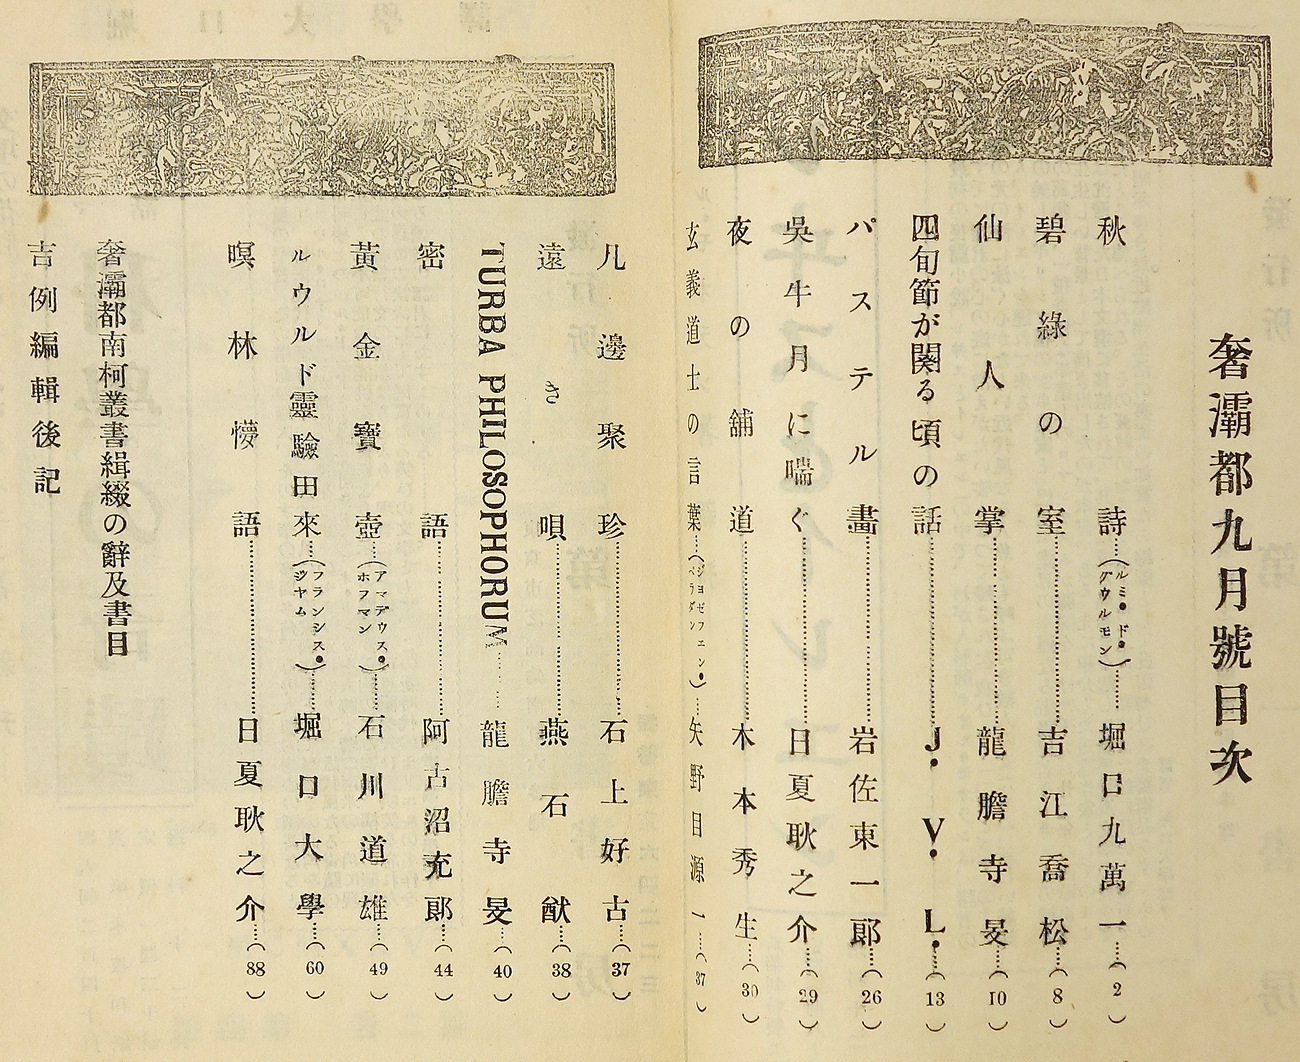 奢灞都九月號目次
秋詩……(ルミ・ド・グウルモン)……堀口九萬一……(2)
碧綠の室……吉江喬松……(8)
仙人掌……龍膽寺旻……(10)
四旬節が関る頃の話……J・V・L・……(13)
パステル畵……岩佐東一郞……(26)
吳牛月に喘ぐ……日夏耿之介……(29)
夜の舖道……木本秀生……(30)
玄義道士の言葉……(ジヨゼフエン・ペラダン)……矢野目源一……(37)
凡邊聚珍……石上好古……(37)
遠き唄……燕石猷……(38)
TURBA PHILOSOPHORUM……龍膽寺旻……(40)
密語……阿古沼充郞……(44)
黃金寶壺……(アマデウス・ホフマン)……石川道雄……(49)
ルウルド靈驗田來……(フランシス・ジヤム)……堀口大學……(60)
暝林懵語……日夏耿之介……(88)
奢灞都南柯叢書緝綴の辭及書目
吉例編輯後記